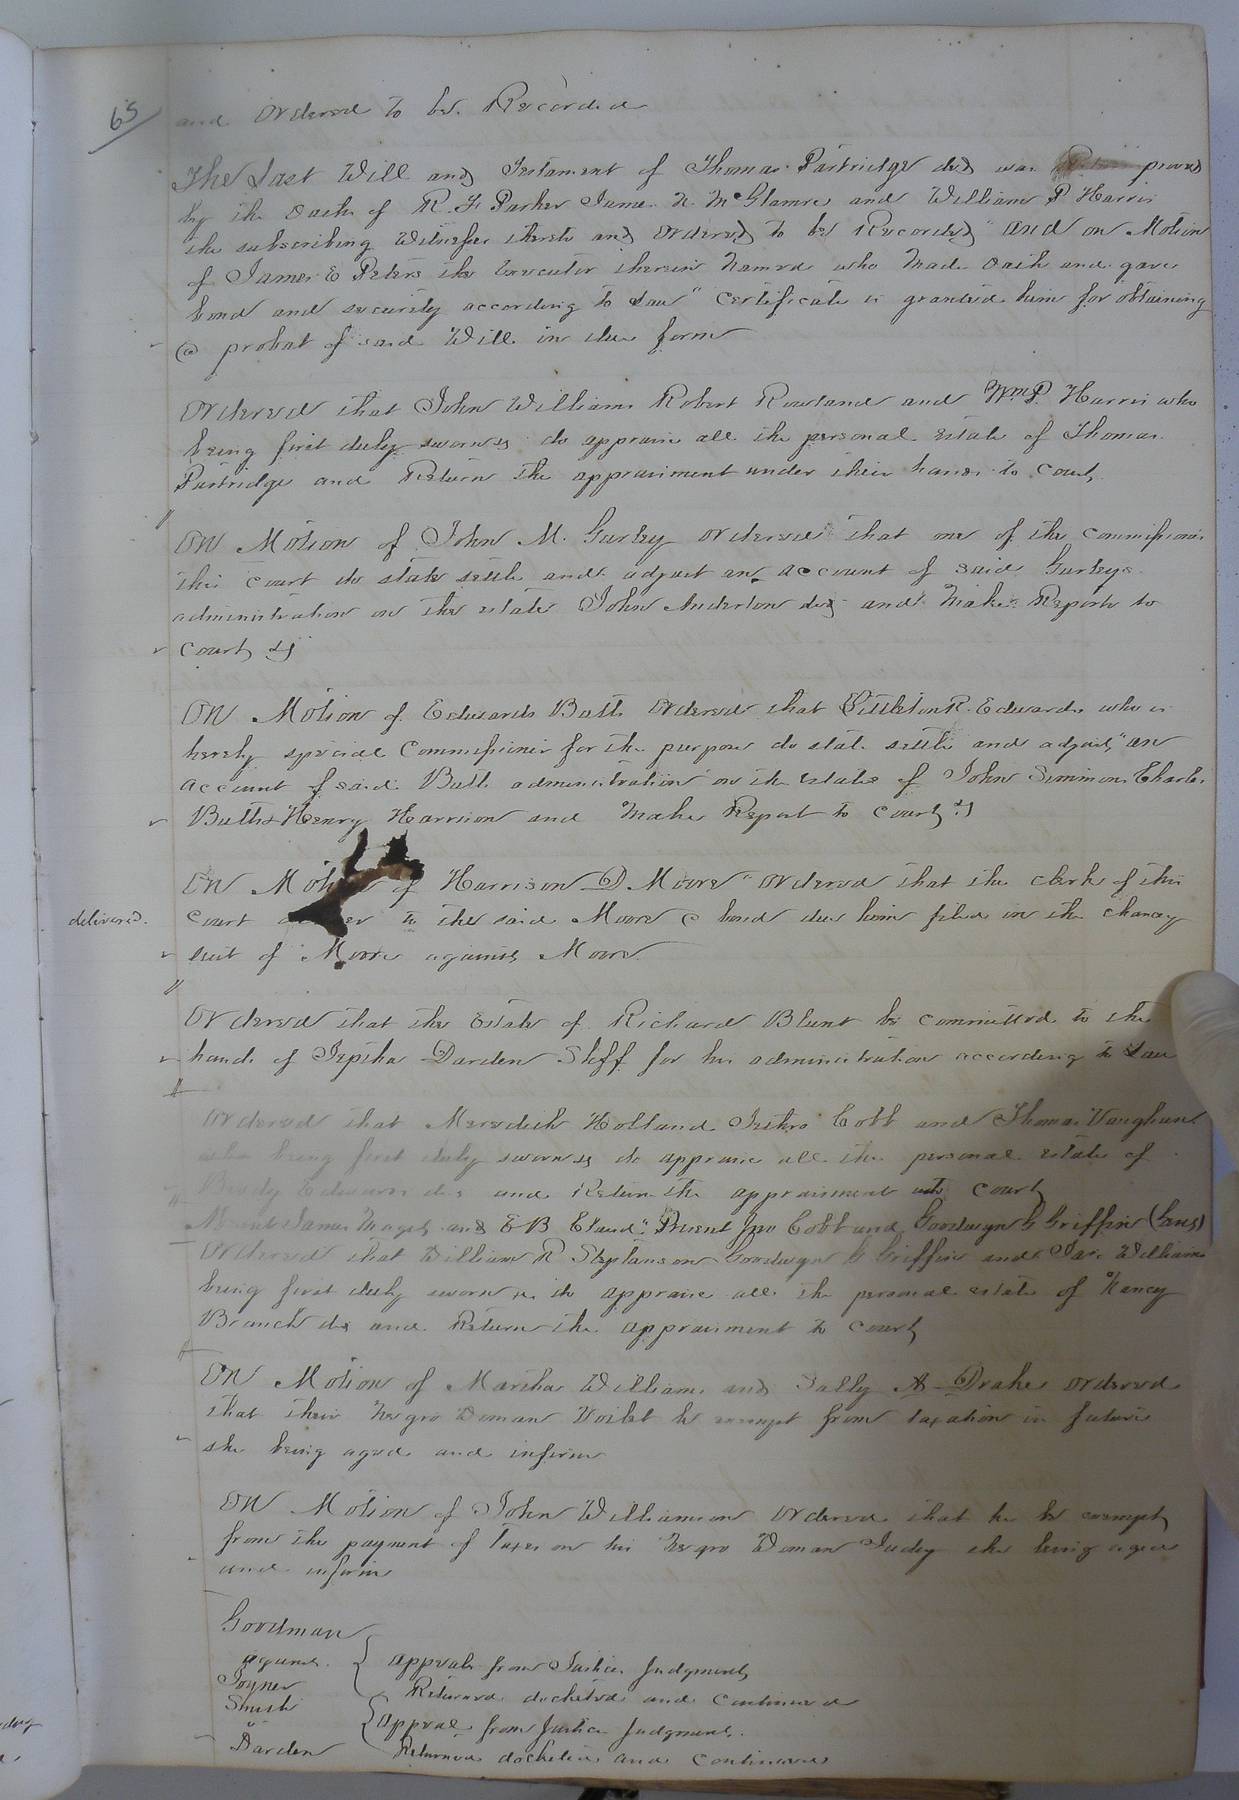 65
and Ordered to be Recorded
The Last Will and Testament of Thomas Partridge decd was proved
by the Oath of R. F. Parker James N. McGlamre and William P Harris
the subscribing Witnesses thereto and Ordered to be Recorded" And on Motion
of James E Peters the Executor therein Named who Made Oath and gave
bond and security according to Law" Certificate is granted him for obtaining
a probat of said Will in due form
Ordered that John Williams Robert Rowland and Wm P. Harris who
being first duly sworn &c do appraise all the personal Estate of Thomas
Partridge and Return the appraisment under their hands to Court
On Motion of John M. Gurley ordered that one of the Commissioners
this Court do state settle and adjust an account of said Gurleys
administration on the estate John Anderton decd and Make Report to
Court &c
On Motion of Edwards Butts Ordered that Littleton R. Edwards who is
hereby special Commissioner for the purpose do state settle and adjust" an
account of said Butts administration on the Estates of John Simmons Charles
Butts & Henry Harrison and Make Report to Court &c
On Motion of Harrison D. Moore" Ordered that the clerk of this
delivered.
Court to the said Moore a bond due him filed in the Chancy
suit of Moore against Moore
Ordered that the Estate of Richard Blunt be committed to the
hands of Jeptha Darden Shff for his administration according to Law
Ordered that Meredith Holland Jethro Cobb and Thomas Vaughan
who being first duly sworn &c do appraise all the personal estate of
Edwards decd and Return the appraisment to Court
James and E B Claud" Present Jno Cobb and Goodwyn G Griffin (Gents)
Ordered that William R Stephenson Goodwyn G Griffin and Williams
being first duly sworn &c do appraise all the personal estate of Nancy
Branch decd and Return the appraisment to Court
On Motion of Martha Williams and Sally A Drake ordered
that their Negro Woman Voilet be exempt from taxation in future
she being aged and infirm
On Motion of John Williamson Ordered that he be exempt
from the payment of Taxes on his Negro Woman Judy she being aged
and infirm
Goodman
against
Joyner
appeal from Justices Judgment
Returned docketed and Continued
Smith
"
Darden
appeal from Justice Judgment.
Returned docketed and Continued